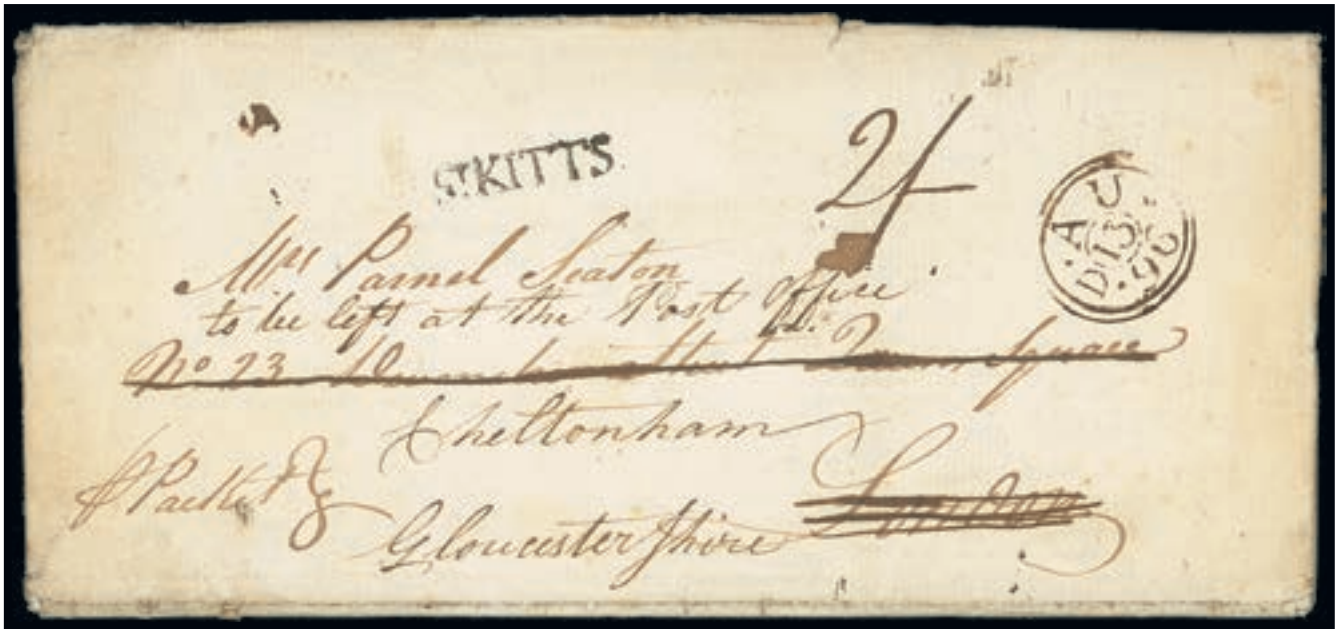 Sᵀ KITTS
2/
AU
D 13
96
Mrs Parnel Seaton
to be left at the Post Office
No 23 Street Queen Square
Cheltonham
P Packet
London
Gloucester Shire